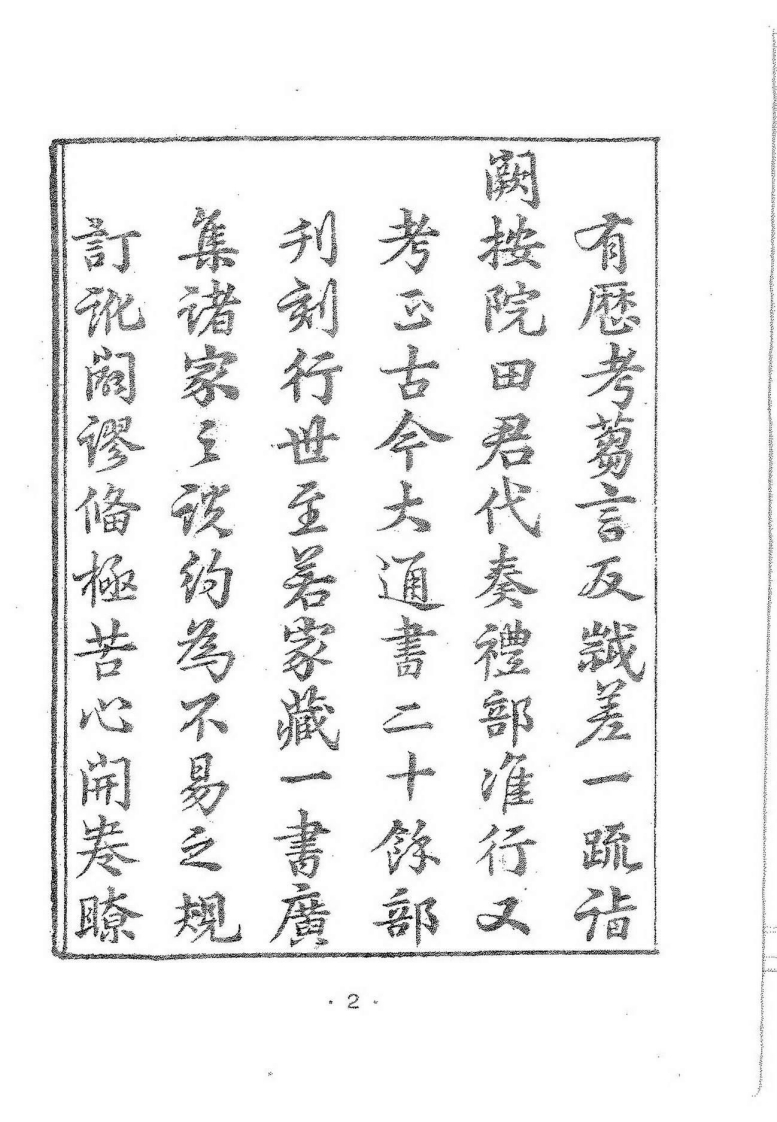 有歷考蒭言反鉞差一疏詣
闕按院田君代奏禮部准行又
考正古今大通書二十餘部
刊刻行世至若家藏一書廣
集諸家之說約為不易之規
訂訛闢謬備極苦心開卷瞭
· 2 ·